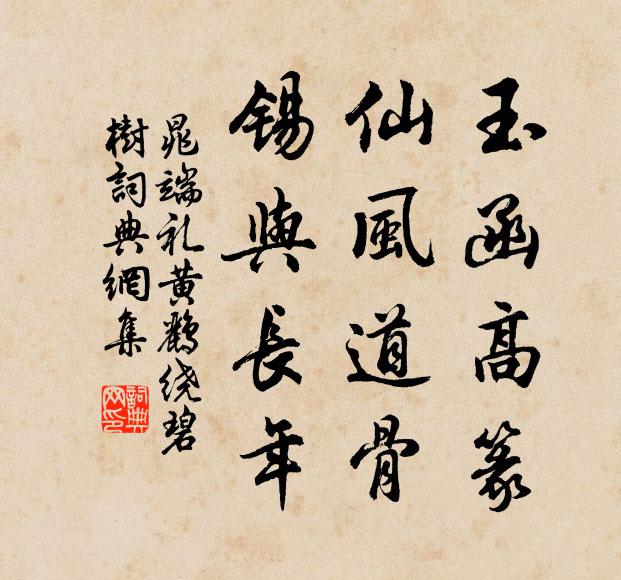 玉函高篆
仙風道骨
錫與長年
晁端礼黄鸝绕碧
樹詞典網集
詞典
网印